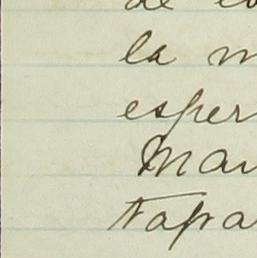 de
la m
esper
Mar
Napa